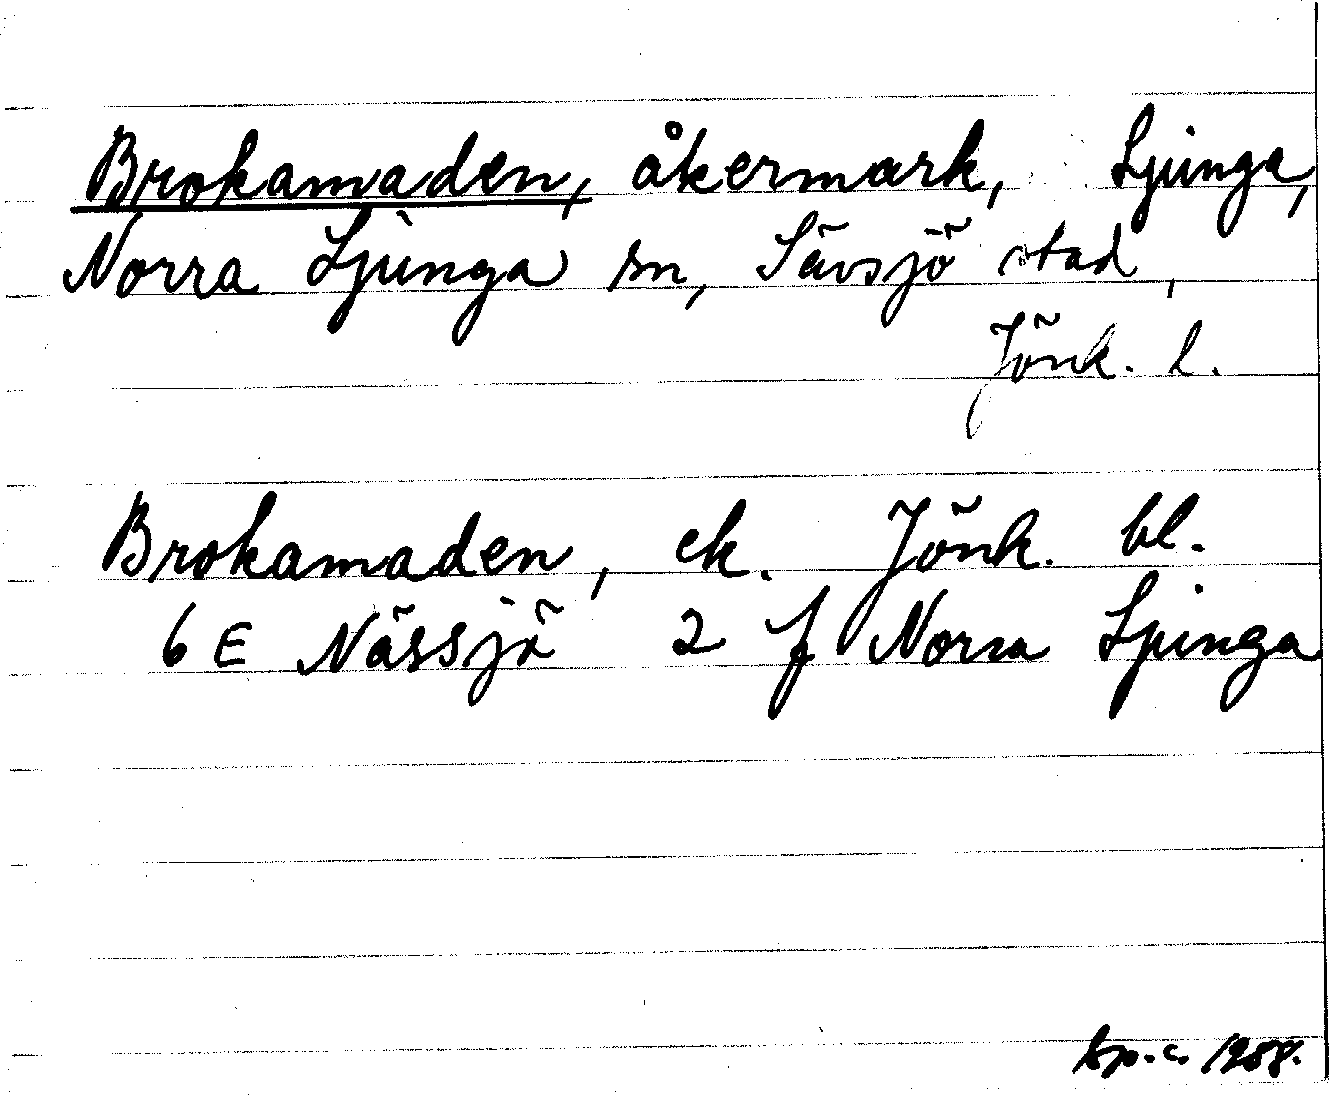 Brokamaden, åkermark, Ljunga,
Norra Ljunga sn, Sävsjö stad,
Jönk. l.
Brokamaden, ek. Jönk. bl.
6 E Nässjö 2 f Norra Ljunga
1958.